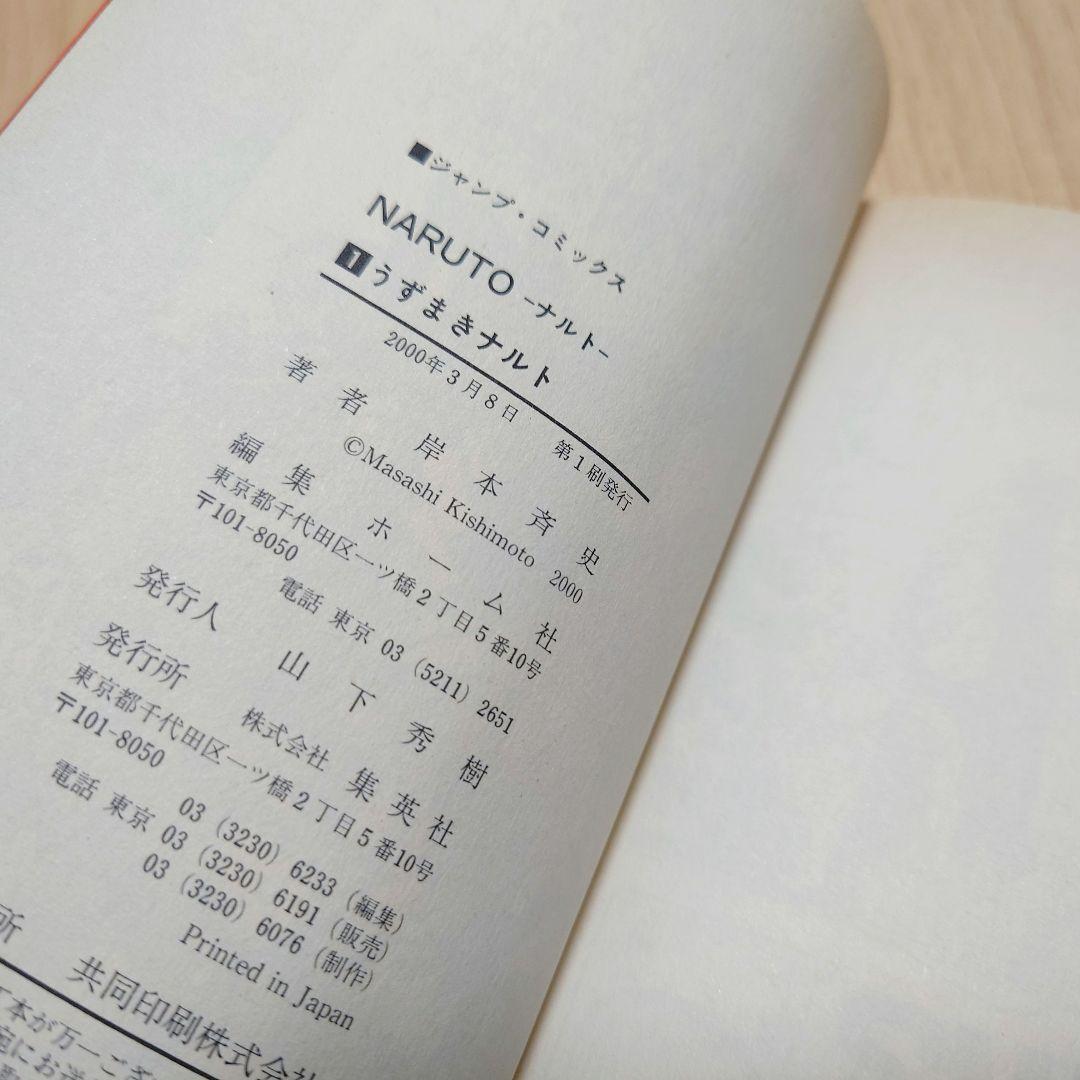 ■ジャンプ・コミックス
NARUTO -ナルト-
1 うずまきナルト
2000年3月8日 第1刷発行
著者 岸本斉史
©Masashi Kishimoto 2000
編集 ホーム社
東京都千代田区一ツ橋2丁目5番10号
〒101-8050
電話 東京 03 (5211) 2651
発行人 山下秀樹
発行所 株式会社 集英社
東京都千代田区一ツ橋2丁目5番10号
〒101-8050
03 (3230) 6233 (編集)
電話 東京 03 (3230) 6191 (販売)
03 (3230) 6076 (制作)
Printed in Japan
所 共同印刷株式会
本が万一ござ
宛にお送